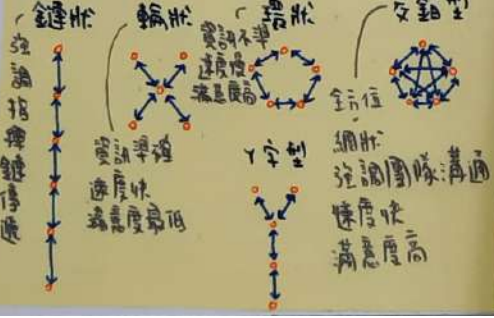 鏈狀
強調指揮鏈傳遞
輪狀
資訊準確
速度快
滿意度最低
環狀
資訊不準
速度慢
滿意度高
Y字型
交錯型
全方位
網狀
強調團隊溝通
速度快
滿意度高